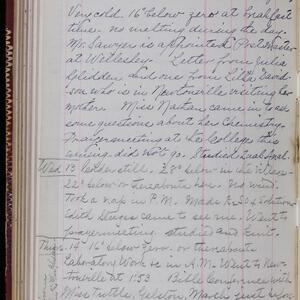 Very cold. 16° below zero at breakfast
time. No melting during the day.
Mr. Sawyer is appointed Post Master
at Wellesley. Letter from Julia
Gledden and one from Effie David-
son who is in Newtonville visiting her
mother. Miss Nason came in to ask
some questions about her Chemistry.
Prayermeeting at the College this
evening did not go. Studied
Wed. 13 Colder still. 28° below in the village
22° below or thereabouts here. No wind.
Took a nap in P.M. Made solutions
Edith came to see me. Went to
prayermeeting. Studied and
Thurs. 14 16° below zero or thereabouts
Laboratory Work in A.M. Went to New-
tonville at 1:53 Bible Conference with
Miss Tuttle, Marsh, just before